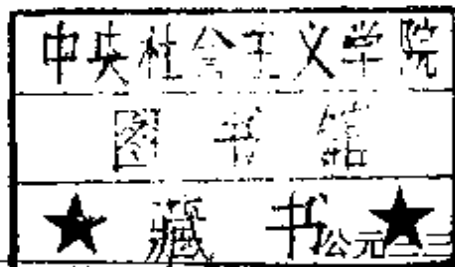 中央社会主义学院
图书馆
★藏书★
公元二三